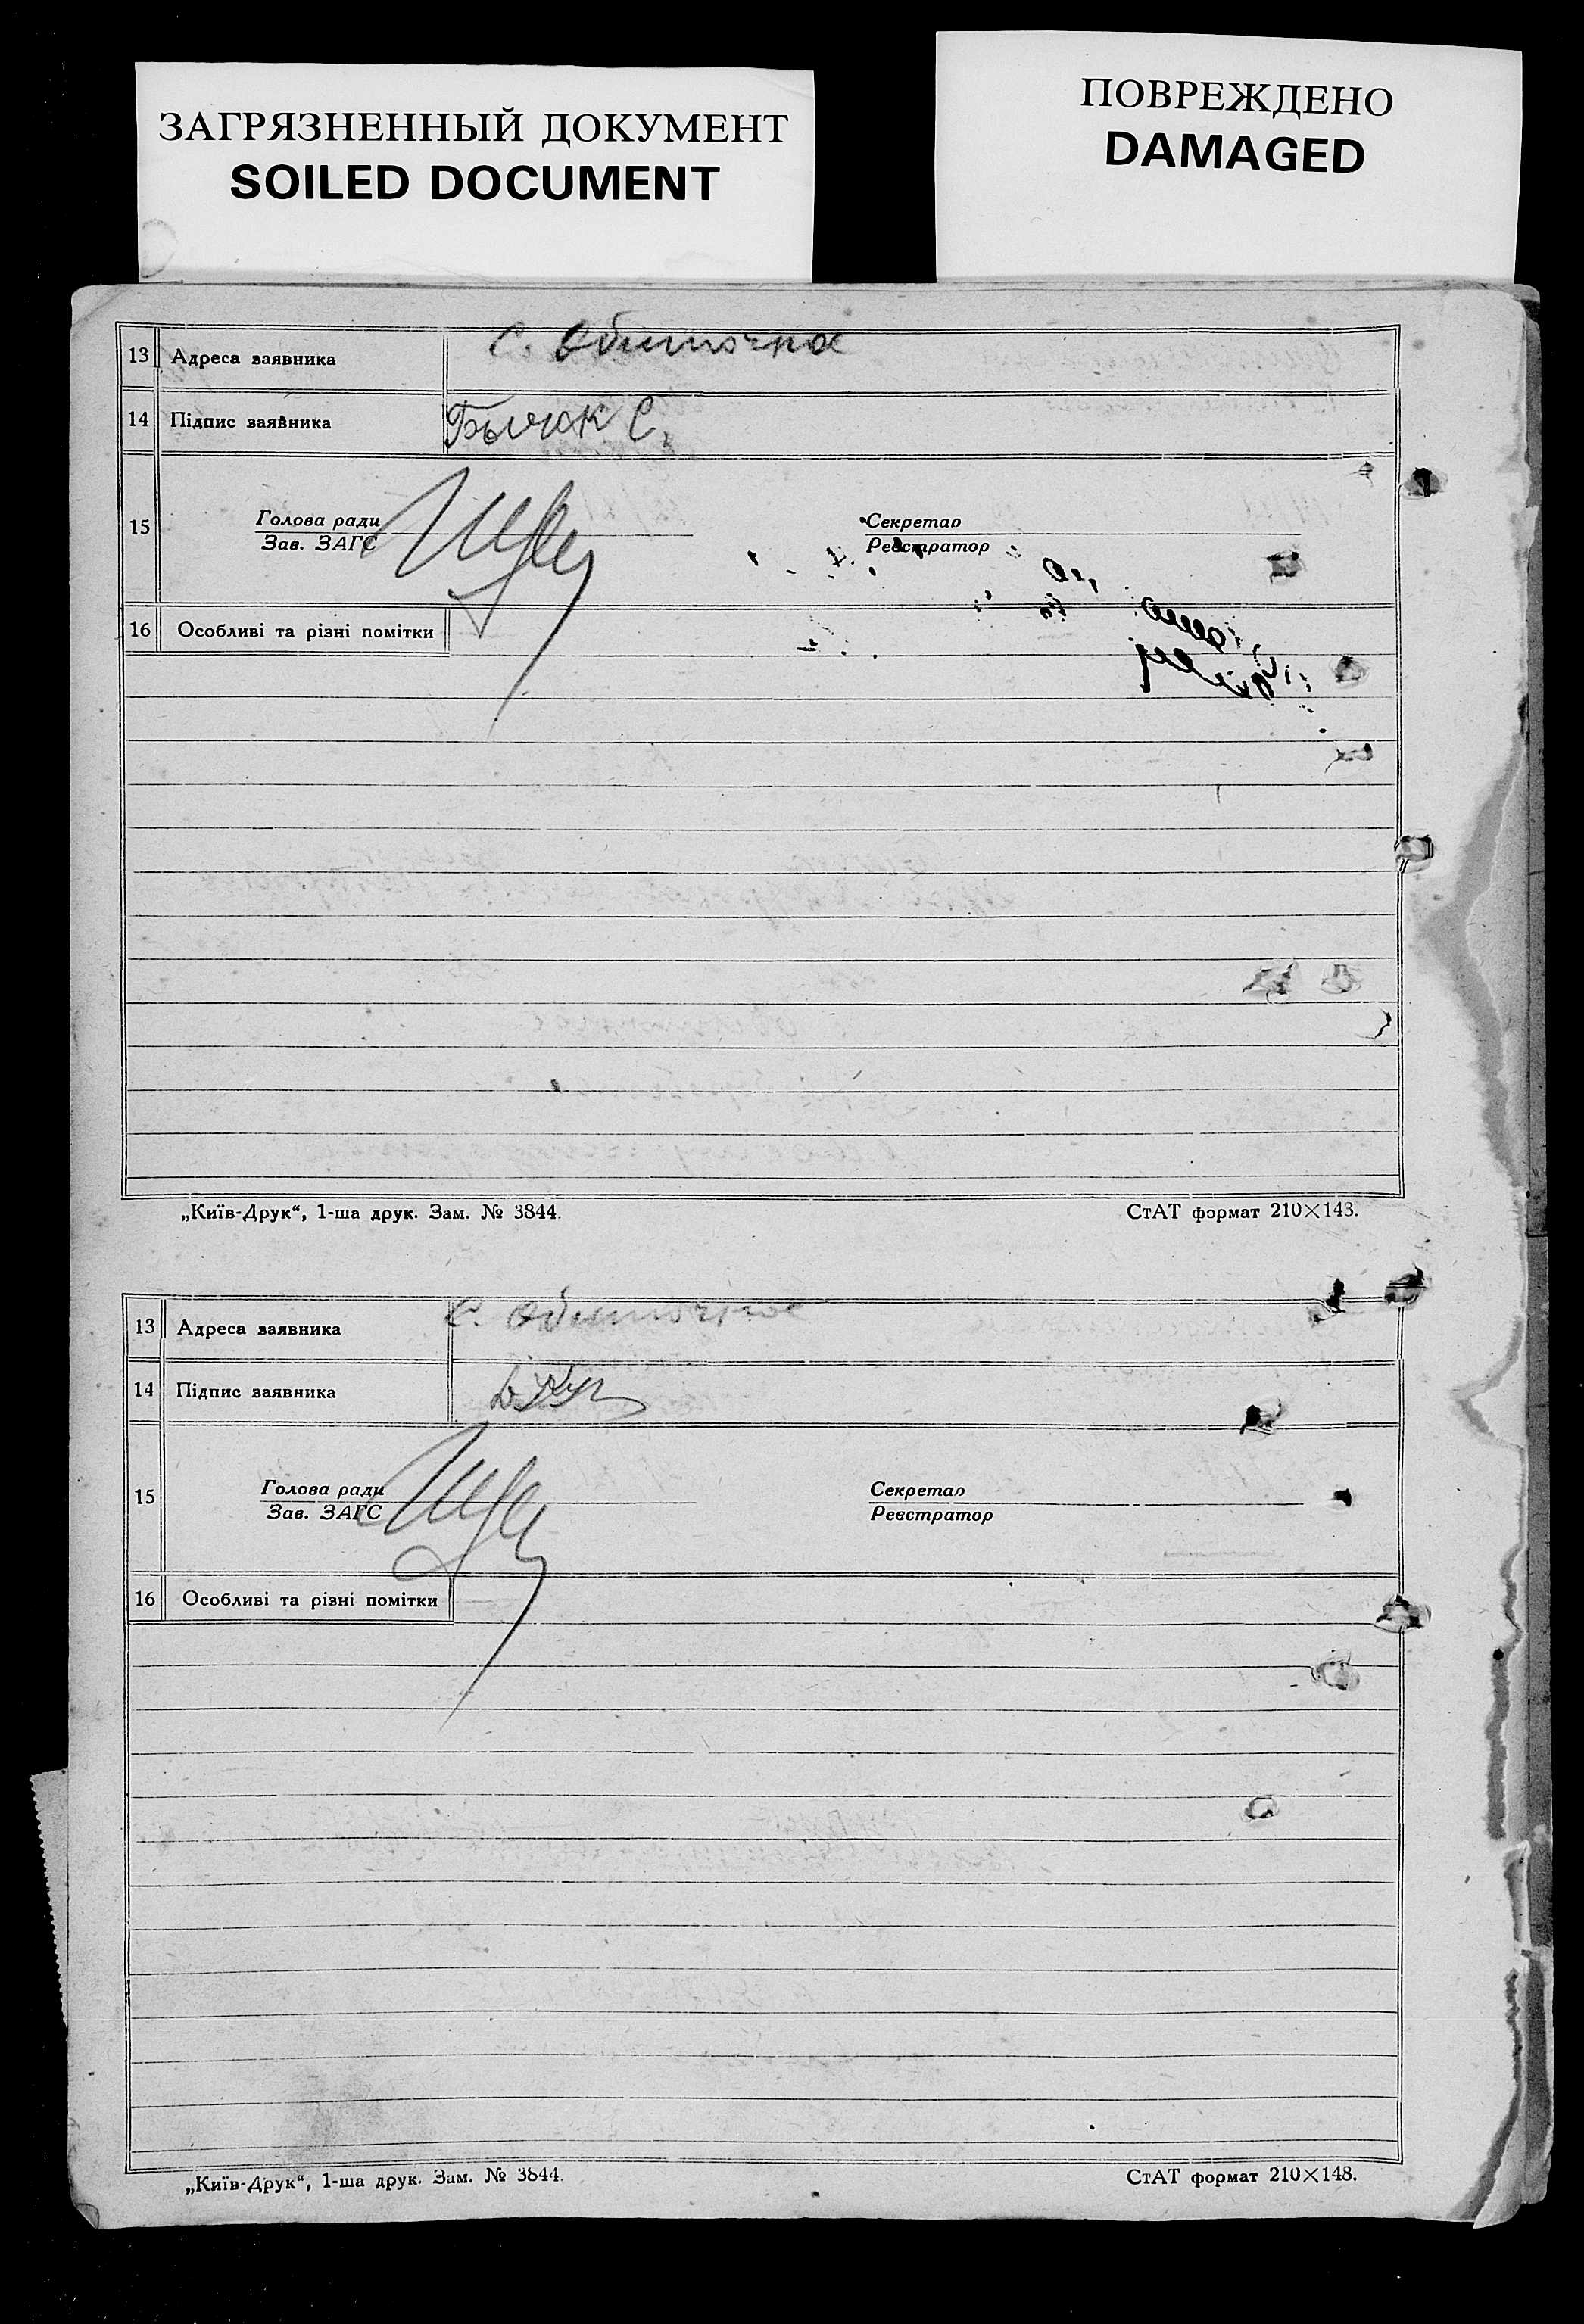 ЗАГРЯЗНЕННЫЙ ДОКУМЕНТ
SOILED DOCUMENT
ПОВРЕЖДЕНО
DAMAGED
13 Адреса заявника С. Одиточка
14 Підпис заявника Бычок С.
15 Голова ради
Зав. ЗАГС
Секретар
Реєстратор
16 Особливі та різні помітки
„Київ-Друк“, 1-ша друк. Зам. № 3844. СтАТ формат 210×143.
13 Адреса заявника С.
14 Підпис заявника
15 Голова ради
Зав. ЗАГС
Секретар
Реєстратор
16 Особливі та різні помітки
„Київ-Друк“, 1-ша друк. Зам. № 3844. СтАТ формат 210×148.